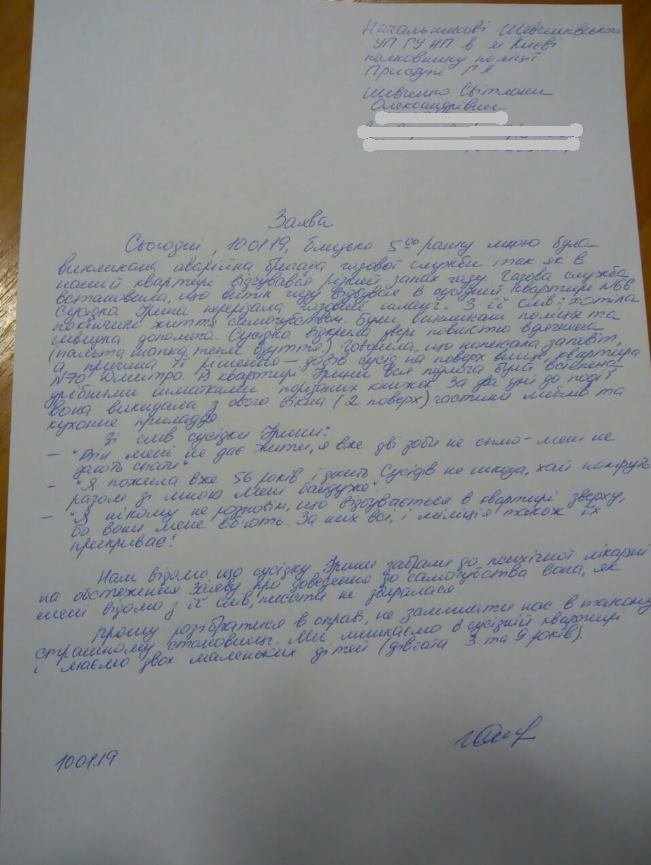 Начальникові Шевченківського
УП ГУ НП в м Києві
полковнику поліції
Приступі Г А
Шевченко Світлани
Олександрівни
Заява
Сьогодні, 10.01.19, близько 5 00 ранку мною була
викликана аварійна бригада газової служби так як в
нашій квартирі відчувався різкий запах газу. Газова служба
встановила, що витік газу відбувся в сусідній квартирі №66.
Сусідка Ірина перерізала газовий шланг. З її слів: хотіла
покінчити життя самогубством. Були викликані поліція та
швидка допомога. Сусідка відкрила двері повністю вдягнена
(пальто шапка тепле взуття) говорила, що написала заповіт,
а причина її рішення – дії сусід на поверх вище, квартира
№70, Дмитро. В квартирі Ірини вся підлога була встелена
дрібними шматками порізаних книжок. За два дні до події
вона викидала з свого вікна (2 поверх) частини меблів та
кухонне приладдя
Зі слів сусідки Ірини:
– "Він мені не дає жити, я вже дві доби не сплю – мені не
дають спати"
– "Я пожила вже 56 років і досить Сусідів не шкода, хай помруть
разом зі мною Мені байдуже"
– "Я нікому не розповім, що відбувається в квартирі зверху,
бо вони мене вб'ють. За них всі, і міліція також їх
прикриває".
Нам відомо, що сусідку Ірину забрали до психічної лікарні
на обстеження Заяву про доведення до самогубства вона, як
мені відомо з її слів, писати не збиралася
Прошу розібратися в справі, не залишати нас в такому
страшному становищі. Ми мешкаємо в сусідній квартирі
і маємо двох маленьких дітей (дівчата 3 та 9 років)
10.01.19